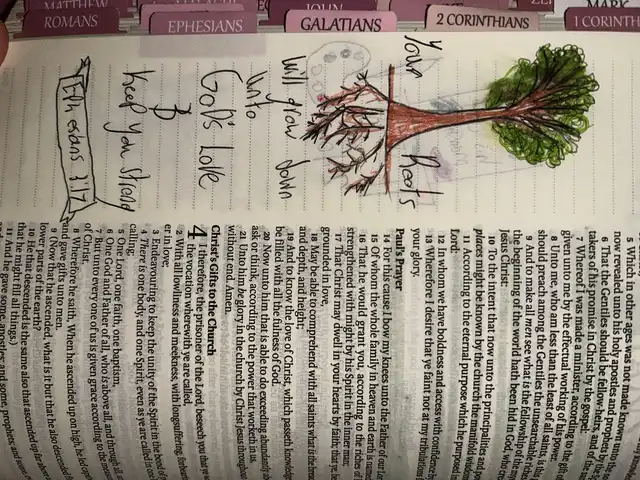 MATTHEW
JOHN
MARK
ROMANS
EPHESIANS
GALATIANS
2 CORINTHIANS
1 CORINTH
Your Roots
will grow down
unto
God's Love
&
Keep you strong
Ephesians
5 Which in other ages was not made known unto
now revealed unto his holy apostles and prophets by
6 That the Gentiles should be fellow heirs, and of the
takers of his promise in Christ by the gospel:
7 Whereof I was made a minister, according to the gift of
given unto me by the effectual working of his power.
8 Unto me, who am less than the least of all saints, is this
should preach among the Gentiles the unsearchable
9 And to make all men see what is the fellowship of the
the beginning of the world hath been hid in God, who
Jesus Christ:
10 To the intent that now unto the principalities and
places might be known by the church the manifold wisdom
11 According to the eternal purpose which he purposed in
Lord:
12 In whom we have boldness and access with confidence
13 Wherefore I desire that ye faint not at my tribulations
your glory.
Paul's Prayer
14 For this cause I bow my knees unto the Father of our Lord
15 Of whom the whole family in heaven and earth is named,
16 That he would grant you, according to the riches of
strengthened with might by his Spirit in the inner man;
17 That Christ may dwell in your hearts by faith; that ye,
grounded in love,
18 May be able to comprehend with all saints what is the
and depth, and height;
19 And to know the love of Christ, which passeth knowledge
be filled with all the fulness of God.
20 Now unto him that is able to do exceeding abundantly
ask or think, according to the power that worketh in us,
21 Unto him be glory in the church by Christ Jesus throughout
without end. Amen.
Christ's Gifts to the Church
4 I therefore, the prisoner of the Lord, beseech you that ye
the vocation wherewith ye are called,
2 With all lowliness and meekness, with longsuffering, forbear
er in love;
3 Endeavouring to keep the unity of the Spirit in the bond of
4 There is one body, and one Spirit, even as ye are called in
calling;
5 One Lord, one faith, one baptism,
6 One God and Father of all, who is above all, and through all
7 But unto every one of us is given grace according to the
of Christ.
8 Wherefore he saith, When he ascended up on high, he led
and gave gifts unto men.
9 (Now that he ascended, what is it but that he also descended
lower parts of the earth?
10 He that descended is the same also that ascended up far above
that he might fill all things.)
11 And he gave some, apostles; and some, prophets; and some